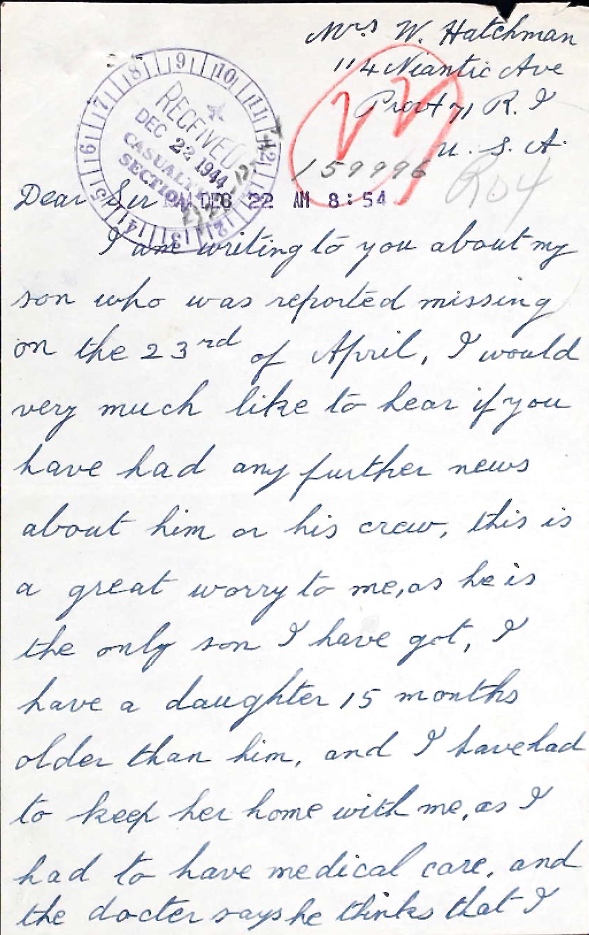 Mrs W. Hatchman
114 Niantic Ave
Prov 7, R. I
U. S. A.
22
159996
R04
RECEIVED
DEC 22 1944
CASUALTY
SECTION
1 2 3 4 5 6 7 8 9 10 11 12
DEC 22 AM 8:54
Dear Sir
I am writing to you about my
son who was reported missing
on the 23rd of April, I would
very much like to hear if you
have had any further news
about him or his crew, this is
a great worry to me, as he is
the only son I have got, I
have a daughter 15 months
older than him, and I have had
to keep her home with me, as I
had to have medical care, and
the docter says he thinks that I